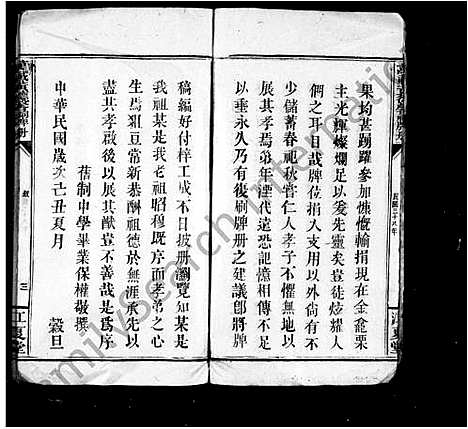 果均甚踴躍參加慷慨輸捐現在金龕栗
主光輝燦爛足以妥先靈矣豈徒炫耀人
們之耳目哉牌位捐入支用以外尚有不
少儲蓄春祀秋嘗仁人孝子不懼無地以
展其孝思惟年湮代遠恐記憶相傳不足
以垂永久乃有復刷牌冊之建議卽將牌
稿編好付梓工成不日披冊瀏覽知某是
我祖某是我老祖昭穆旣序而孝常之心
生焉俎豆常新恭酬祖德於無涯承先以
盡其孝啟後以展其慈豈不善猷是爲序
舊制中學畢業保權敬撰
中華民國歲次己丑夏月 穀旦
三
江夏堂
familysearch international